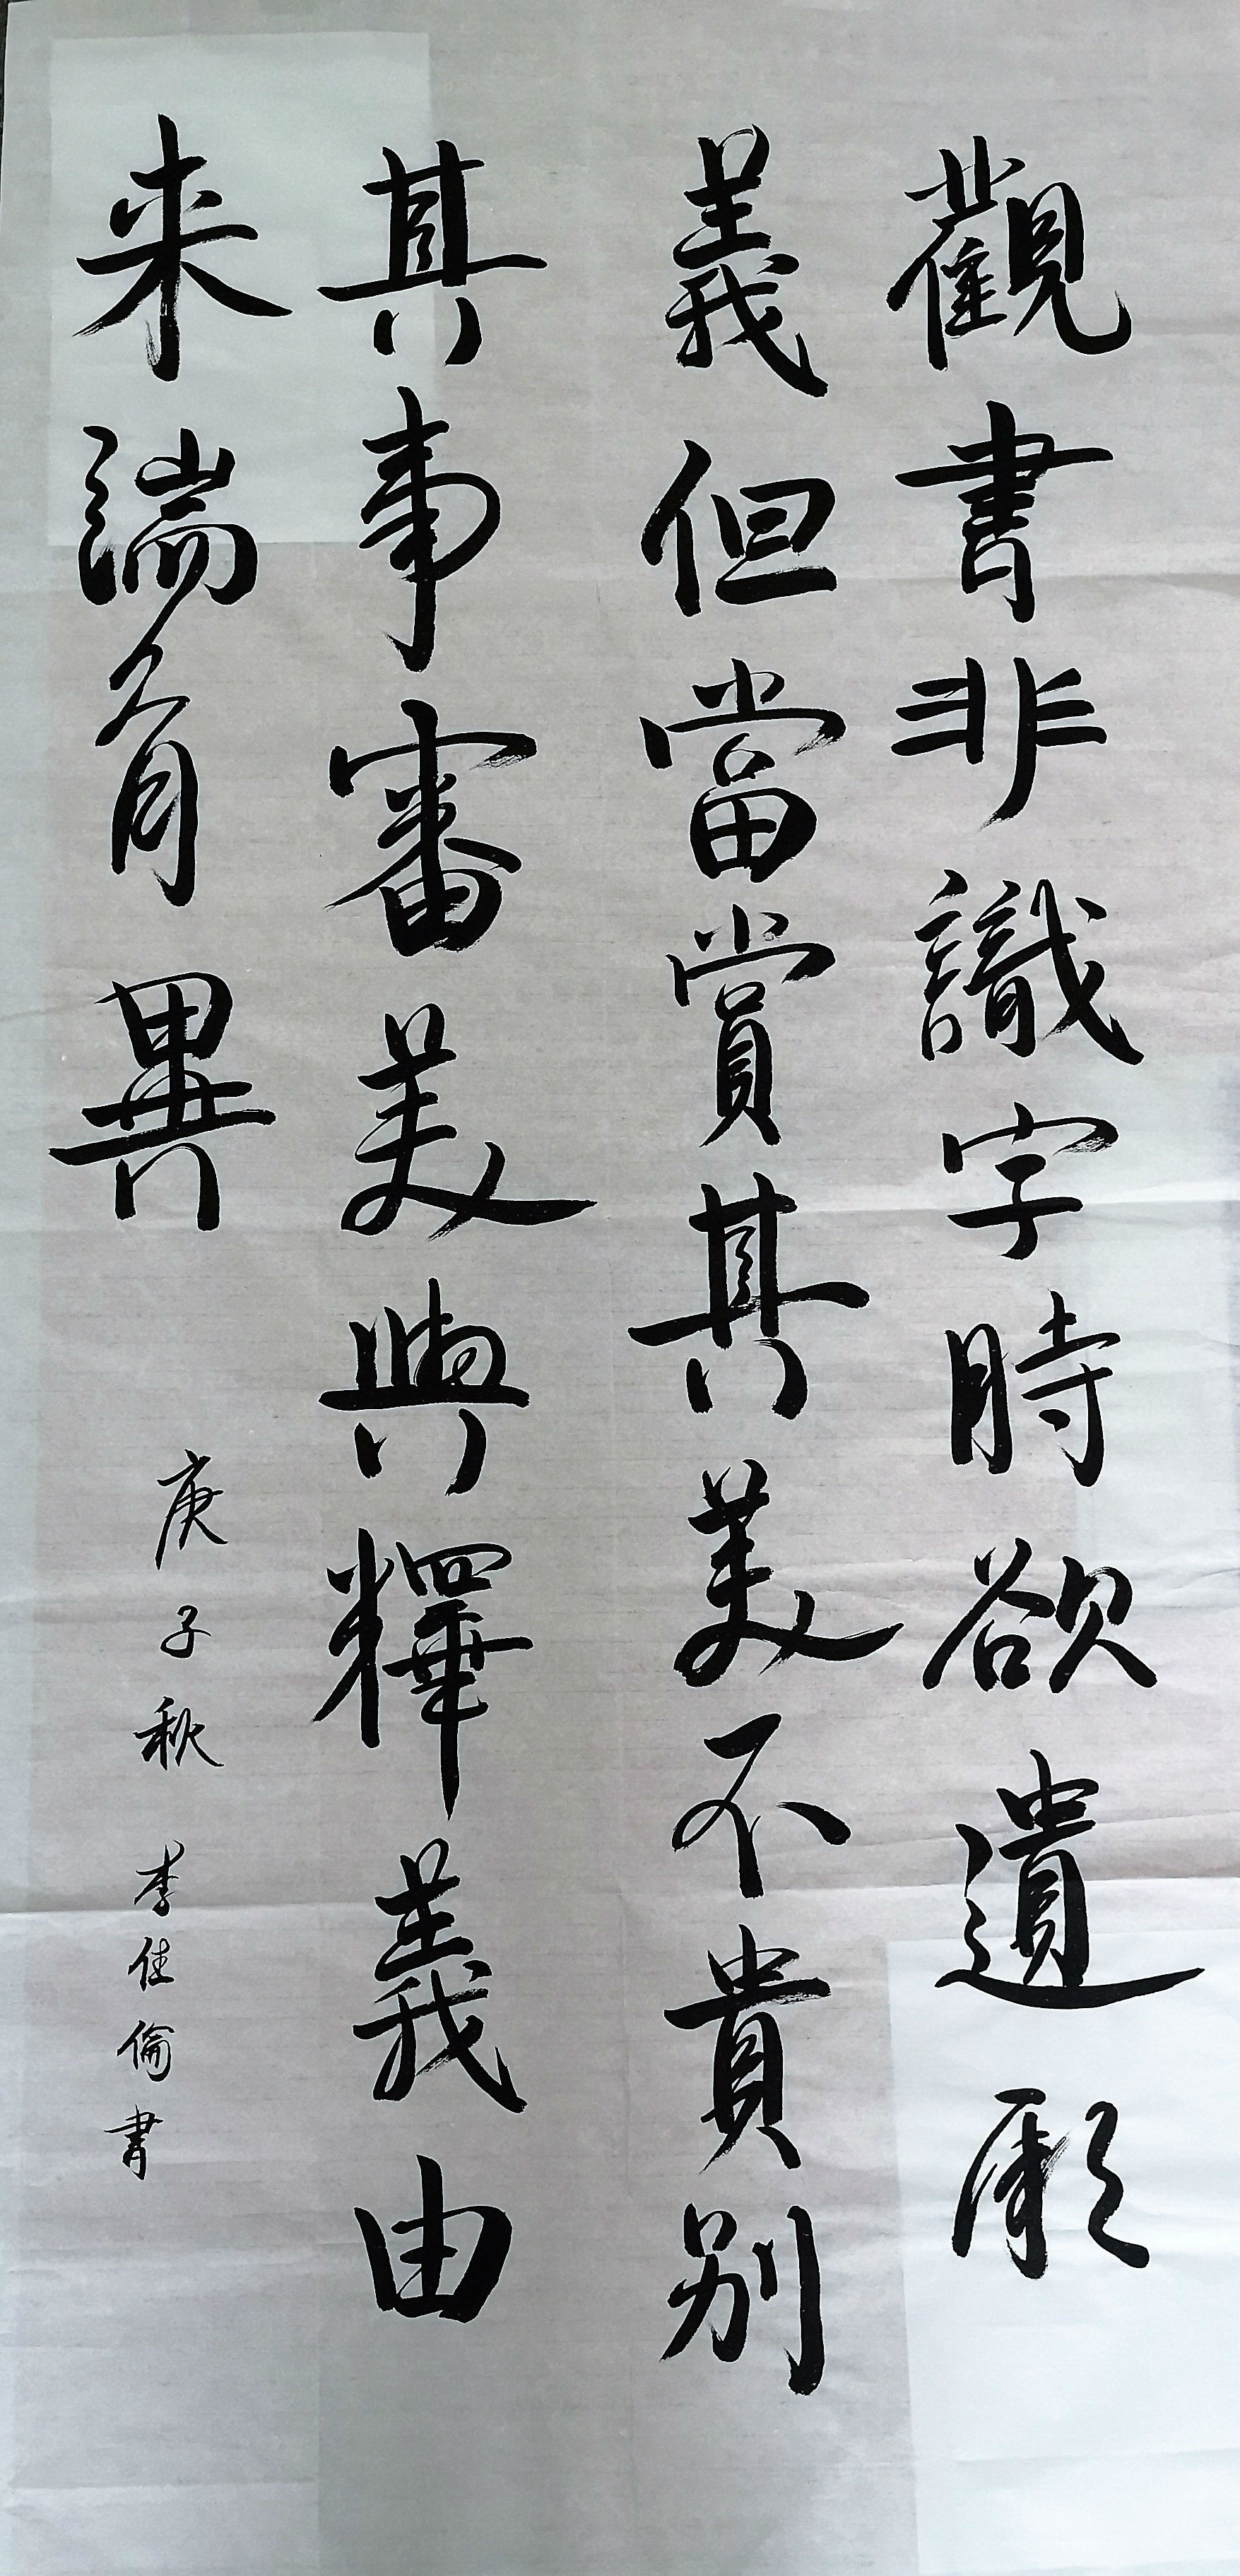 觀書非識字時欲遺厥
義但當賞其美不貴別
其事審美與釋義由
来端有異
庚子秋 李佳倫書